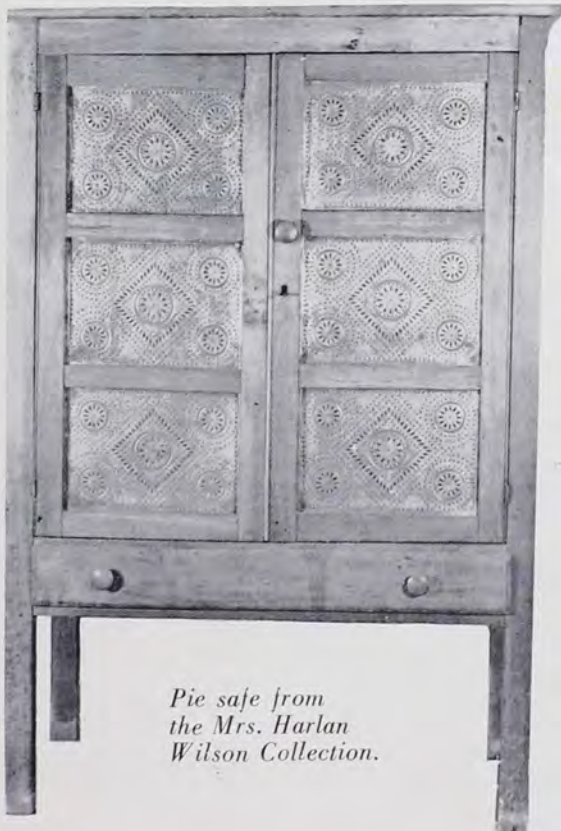 Pie safe from
the Mrs. Harlan
Wilson Collection.